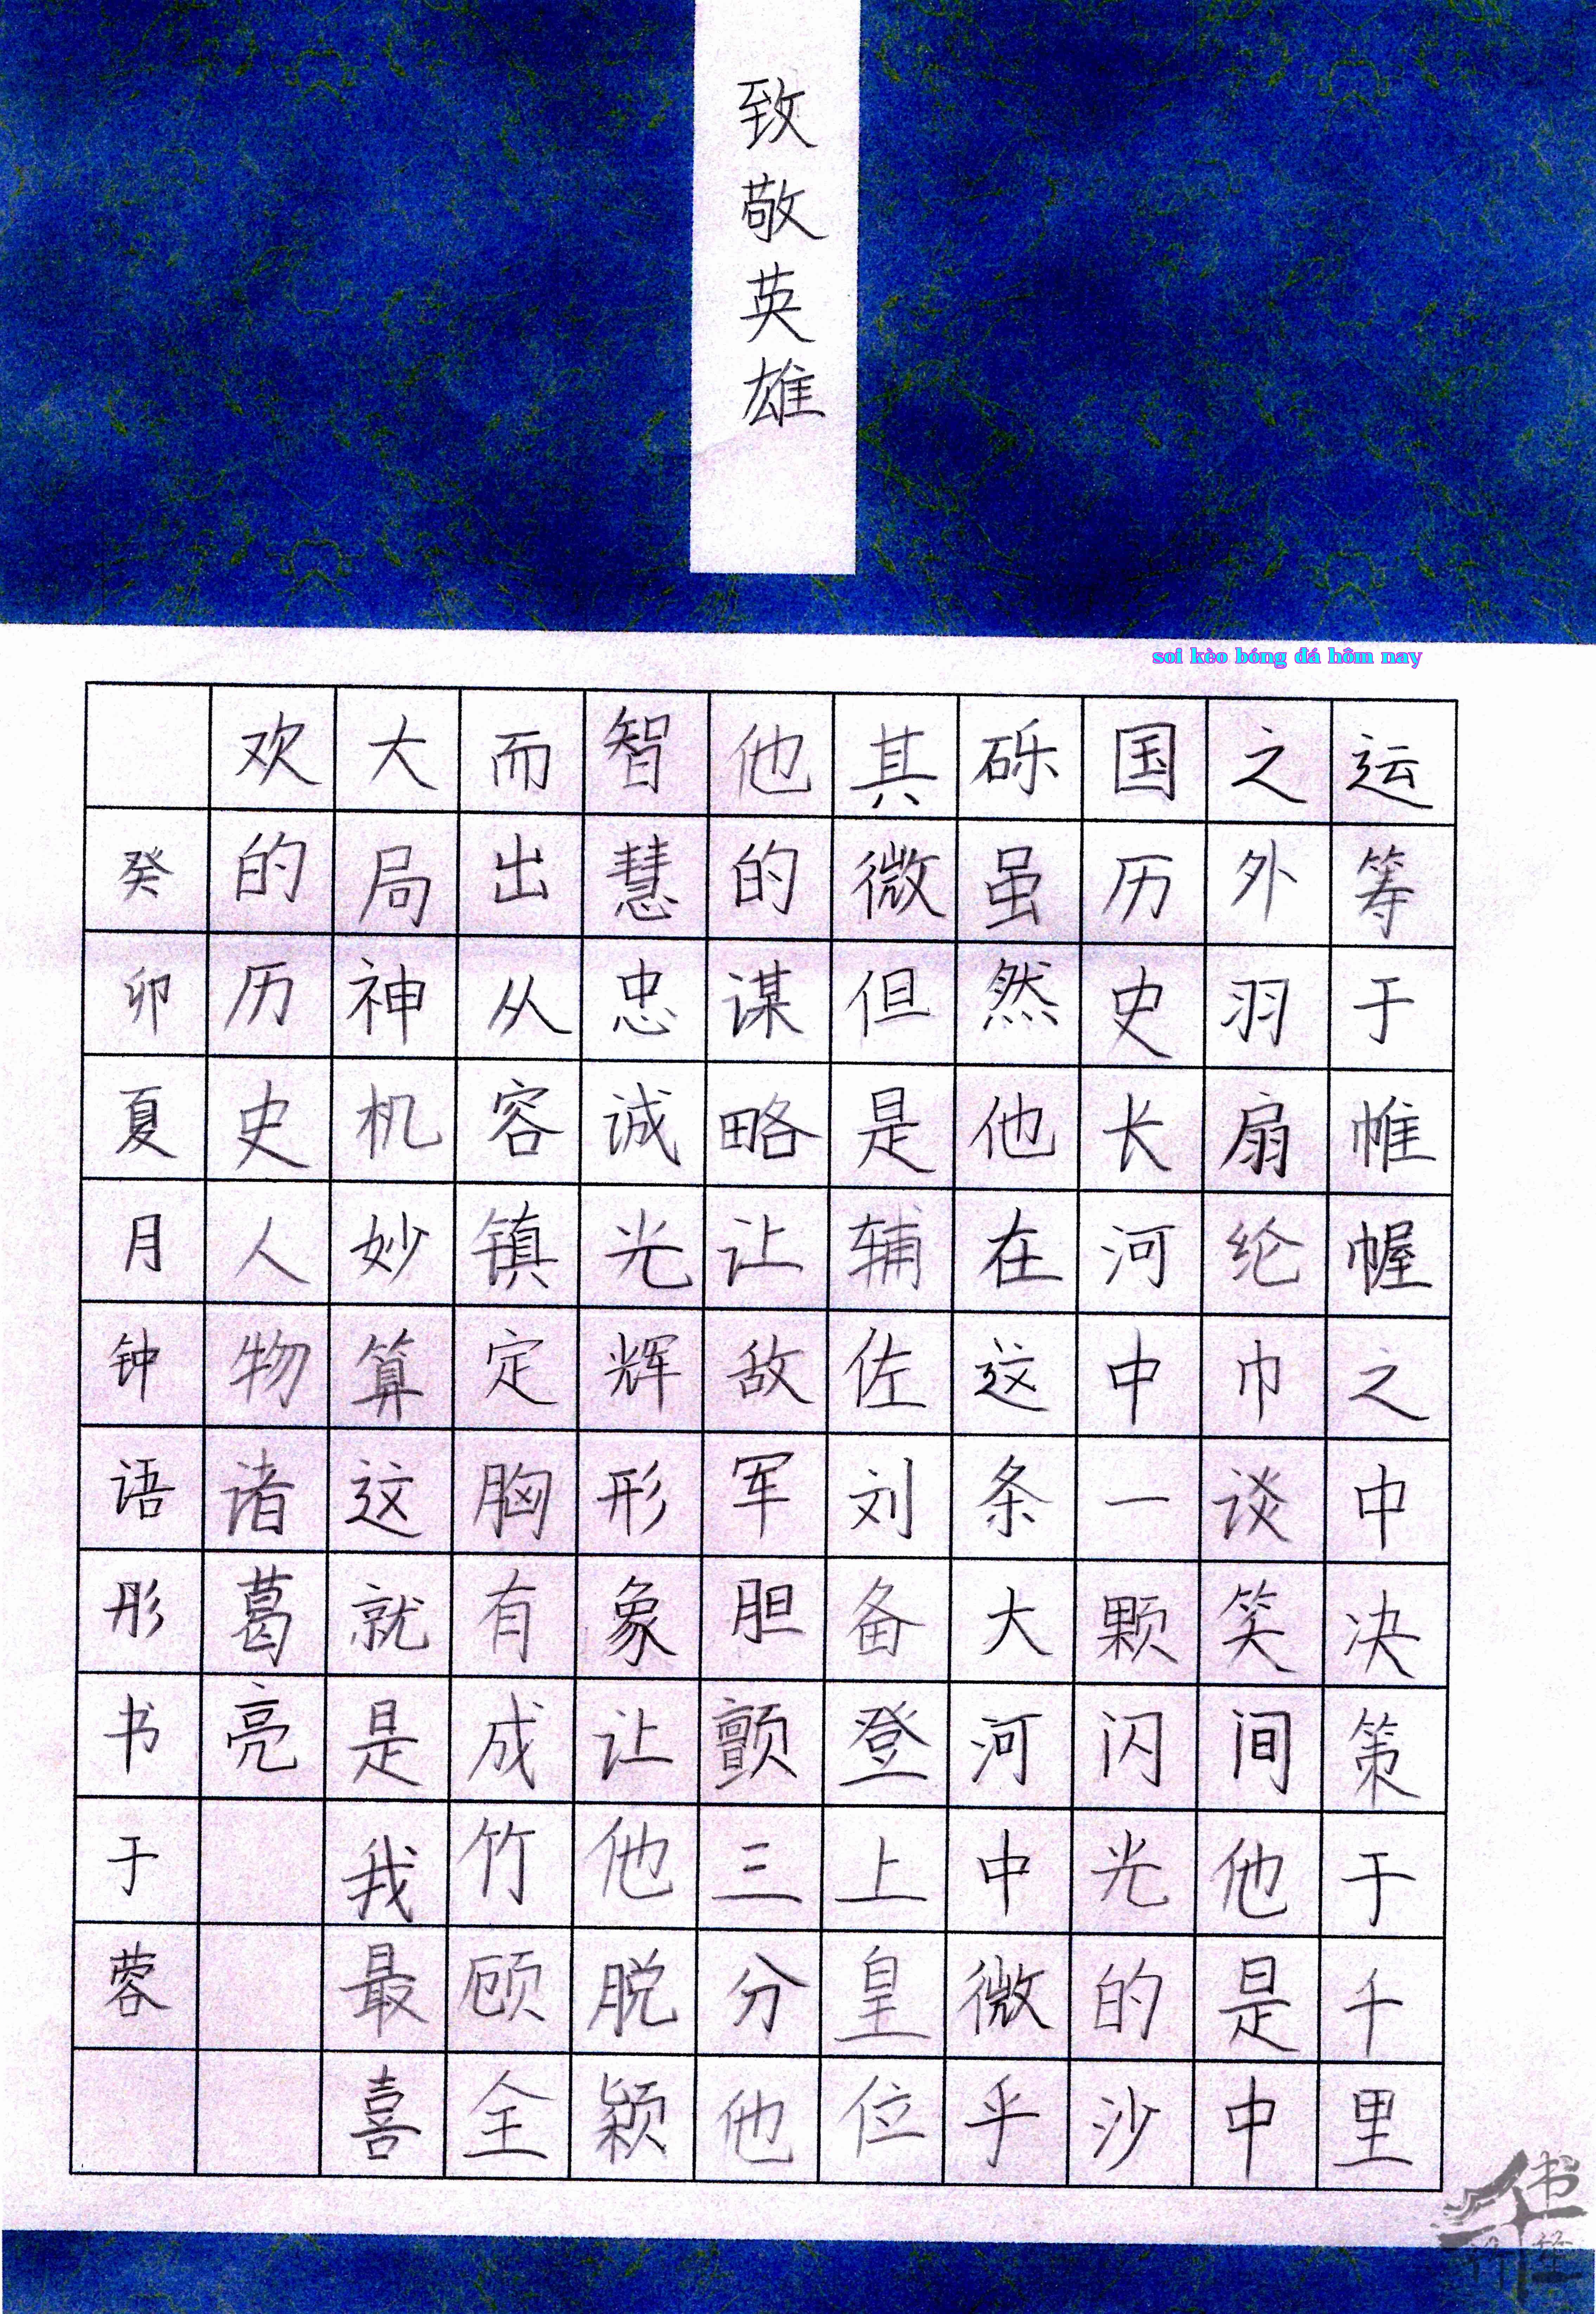 致敬英雄
soi kèo bóng đá hôm nay
运筹于帷幄之中决策于千里
之外羽扇纶巾谈笑间他是中
国历史长河中一颗闪光的沙
砾虽然他在这条大河中微乎
其微但是辅佐刘备登上皇位
他的谋略让敌军胆颤三分他
智慧忠诚光辉形象让他脱颖
而出从容镇定胸有成竹顾全
大局神机妙算这就是我最喜
欢的历史人物诸葛亮
癸卯夏月钟语彤书于蓉